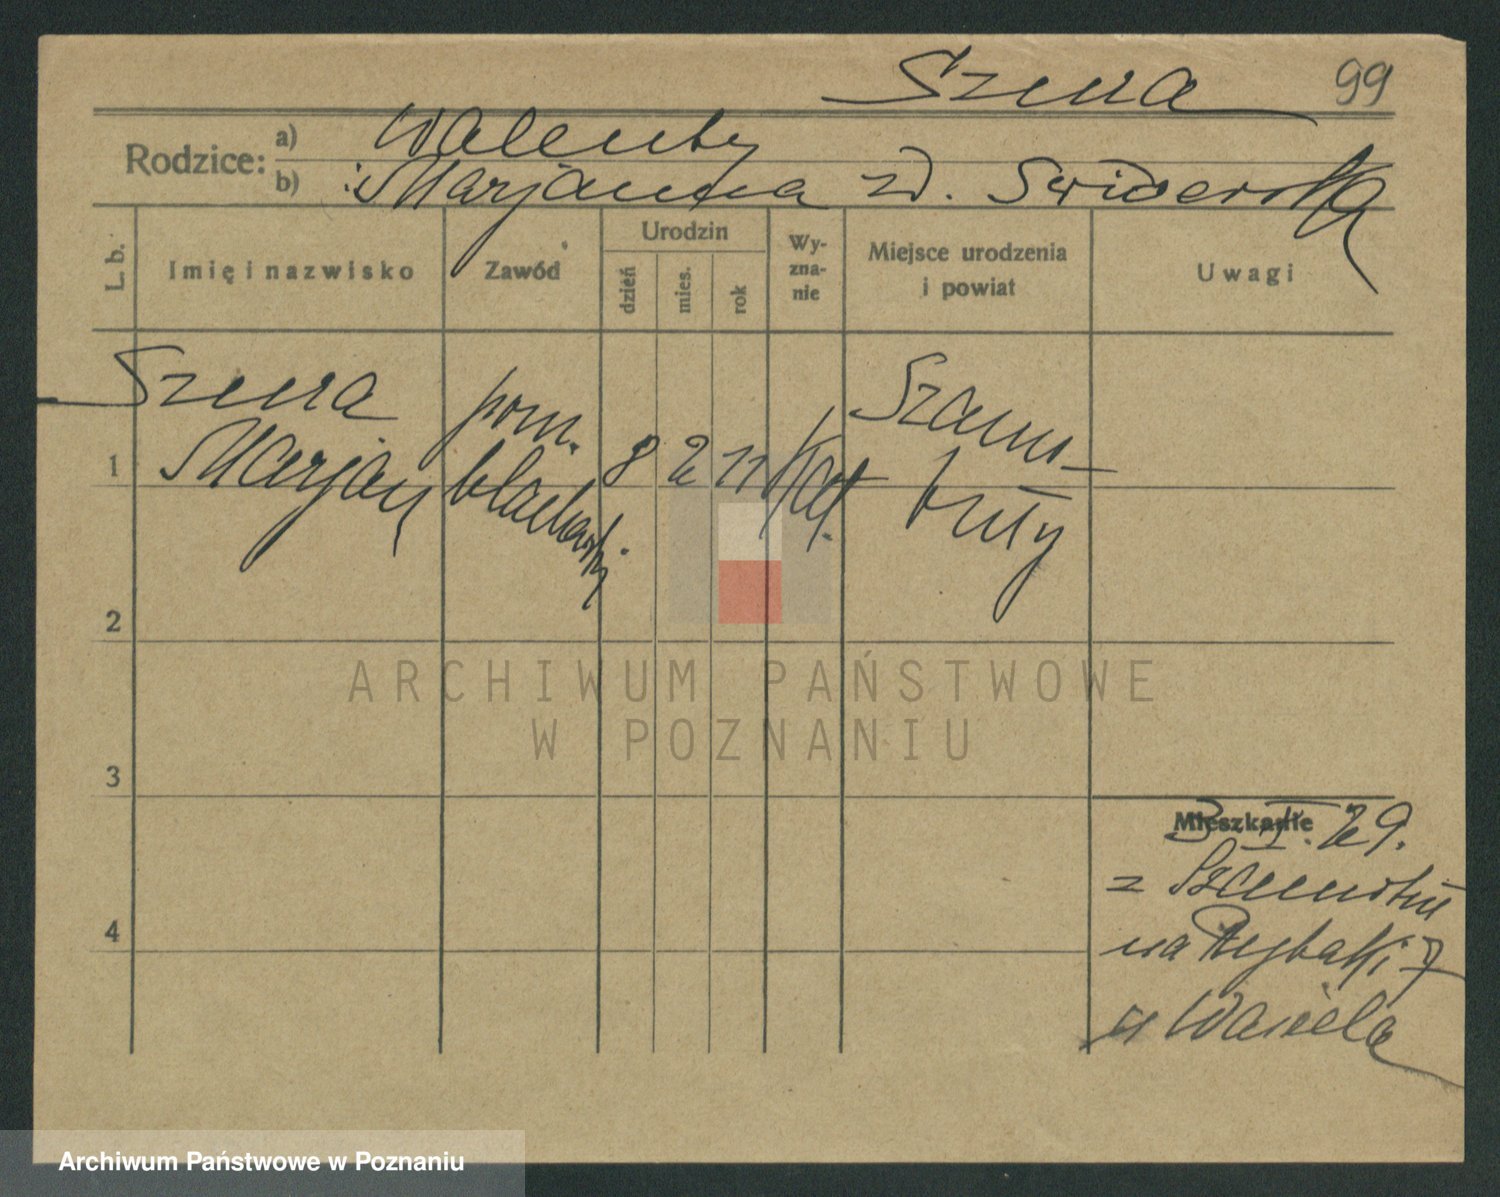 Szura 99
Rodzice: a) Walenty
b) i Marjanna zd. Swiderska
L. b. Imię i nazwisko Zawód Urodzin dzień mies. rok Wyznanie Miejsce urodzenia i powiat Uwagi
1 Szura pom. 8 2 11 kat. Szamo-
Marjan tuły
2
3
4
Mieszkanie
29.
z Szamotuł
na Rybaki 7
u
ARCHIWUM PAŃSTWOWE
W POZNANIU
Archiwum Państwowe w Poznaniu